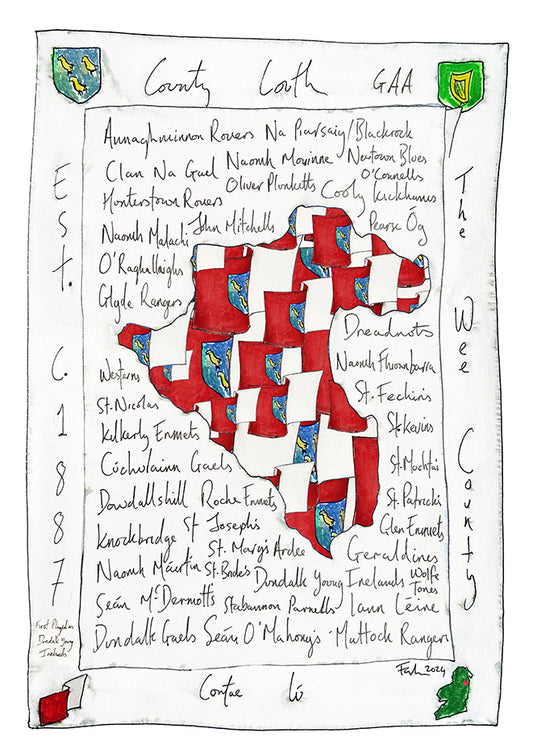 County Louth GAA
Est. C. 1887
The Wee County
Annaghminnon Rovers Na Piarsaigh/Blackrock
Clan Na Gael Naomh Moninne Newtown Blues
Hunterstown Rovers Oliver Plunketts Cooly Kickhams O'Connells
Naomh Malachi John Mitchells Pearse Óg
O'Raghallaighs
Glyde Rangers
Dreadnots
Westerns Naomh Fhionnbarra
St. Nicolas St. Fechin's
Kilkerly Emmets St. Kevins
Cúchulainn Gaels St. Mochtas
Dowdallshill Roche Emmets St. Patricks
Knockbridge St Joseph's Glen Emmets
St. Mary's Ardee Geraldines
Naomh Máirtín St. Bride's Dundalk Young Irelands Wolfe Tones
Seán McDermotts Stabannon Parnells Lann Léire
Dundalk Gaels Seán O'Mahony's Mattock Rangers
Dundalk Young
Irelands
2024
Contae Lú